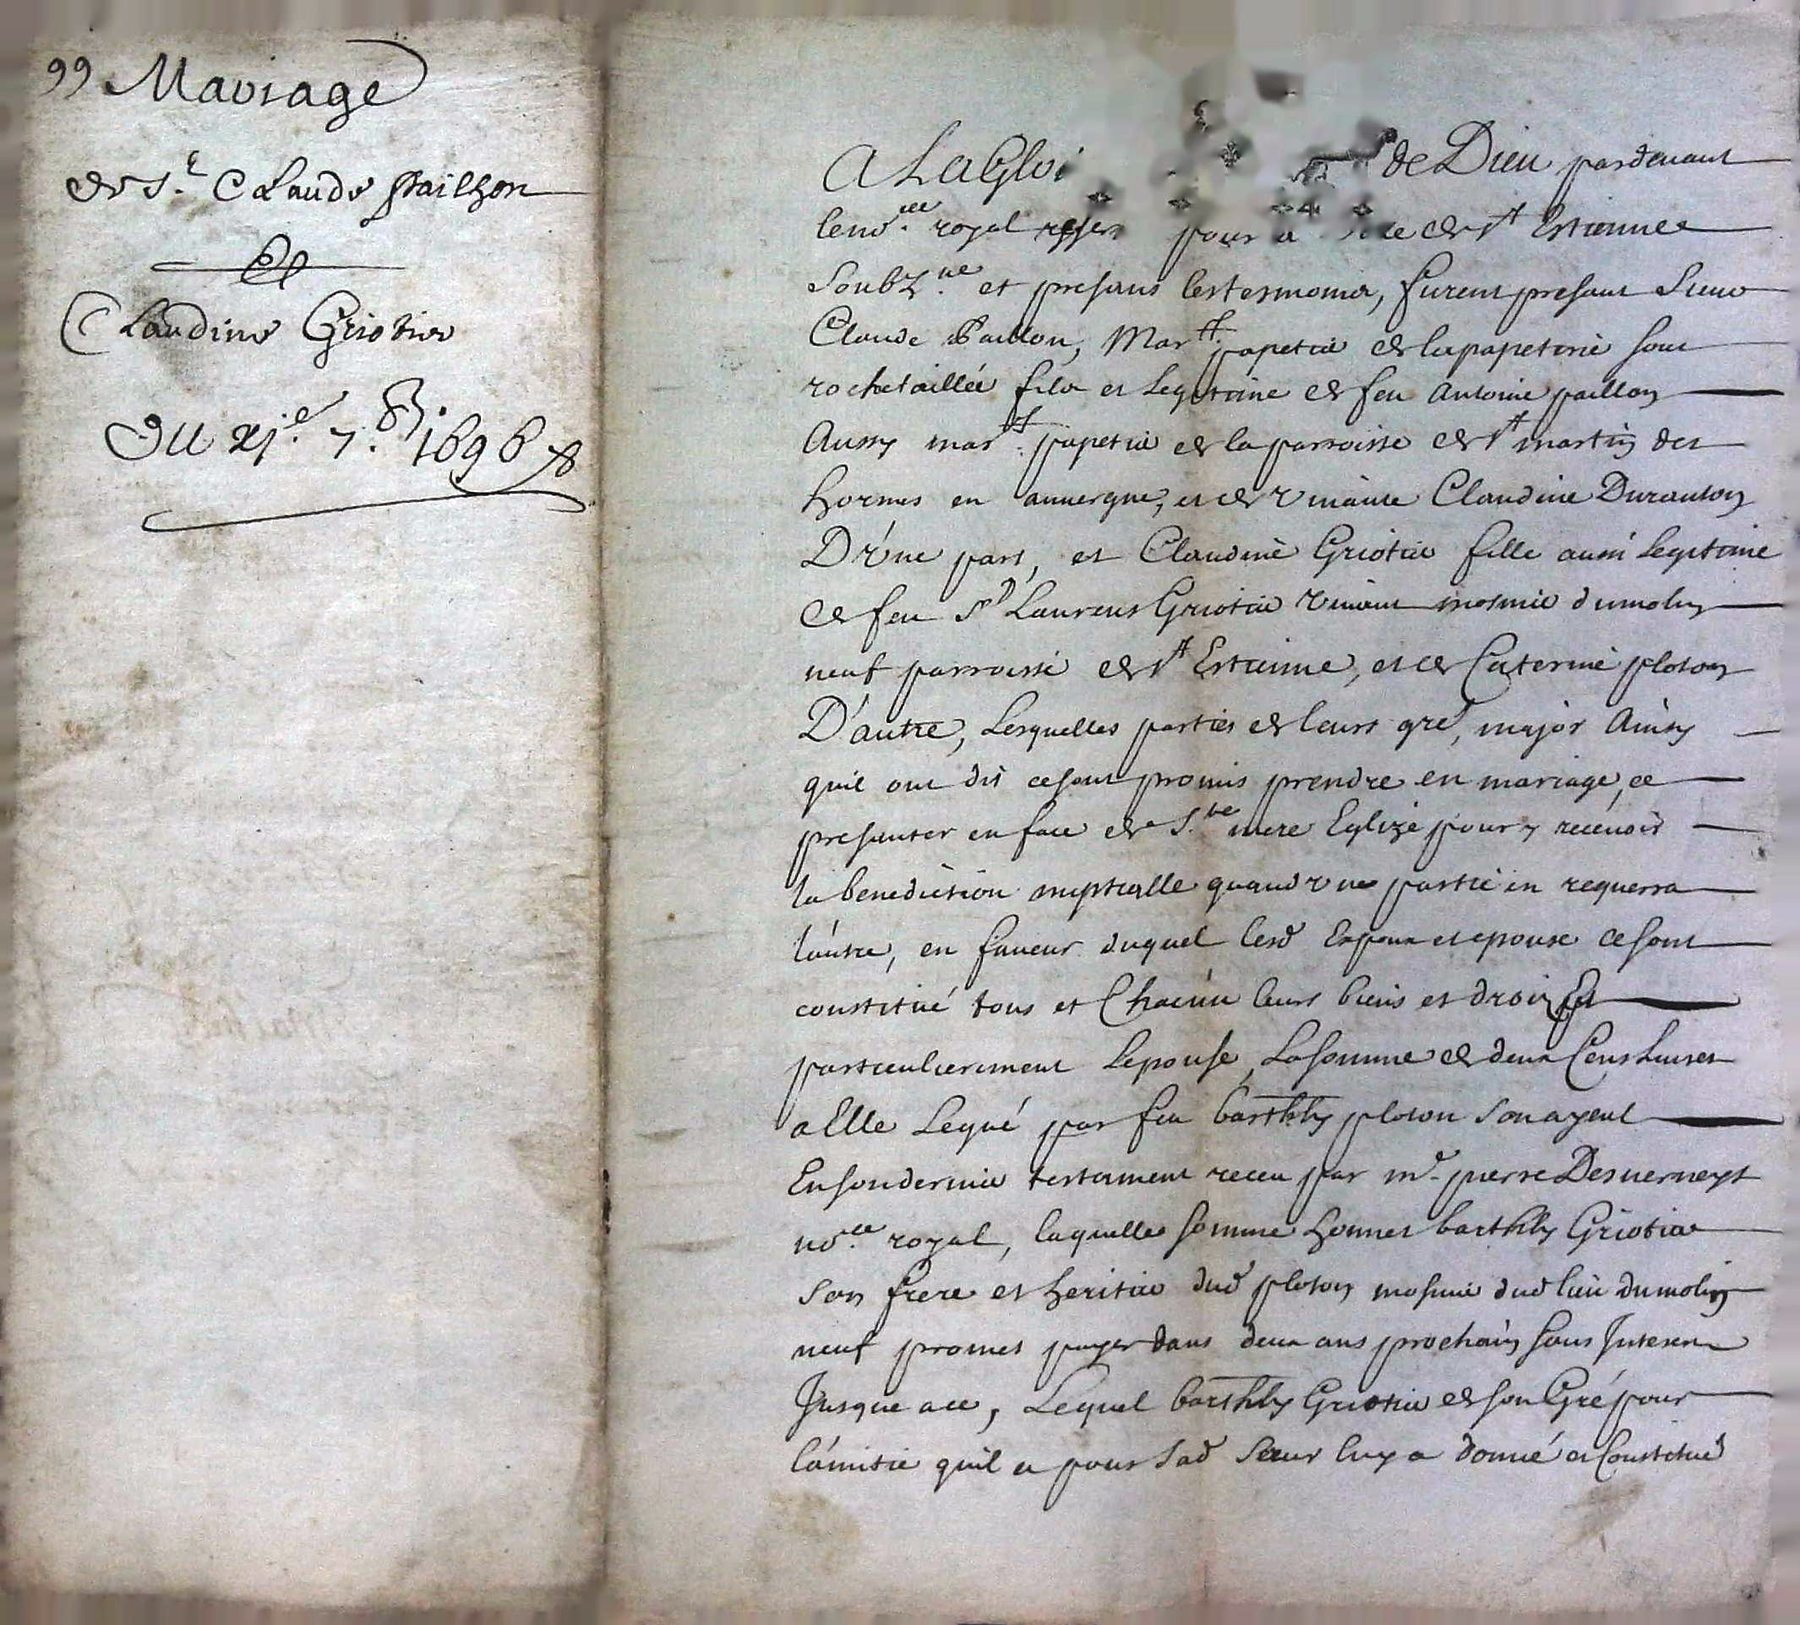 99 Mariage
de Sr. Claude Pailhon
Et
Claudine Griotier
Du xje. 7.bre 1696
A La Gloi de Dieu pardevant
le nore. royal reser pour a de St Estienne
Soubzne. et presans les tesmoins, furent presant Sieur
Claude Paillon, Mart. papetier de la papeterie sous
rochetaillée fils et Legitime de feu Antoine paillon
Aussy mart. papetier de la parroisse de St martin des
hormes en auvergne, et de vivante Claudine Duranton
D'une part, et Claudine Griotier fille aussi Legitime
de feu Sr Laurens Griotier vivant mosnier du molin
neuf parroisse de St Estienne, et de Caterine ploton
D'autre, Lesquelles parties de leurs gré, major Ainsy
quil ont dit ce sont promis prendre en mariage, ce
presanter en face de Ste. mere Eglize pour y recevoir
la benediction nuptialle quand une partie en requerra
l'autre, en faveur duquel lesd Espoux et epouse ce sont
constitué tous et Chacun leurs biens et droix Et
particulierement Lepouse, La somme de deux Cens Livres
a Elle Legué par feu barthly ploton son ayeul
En son dernier testament receu par me. pierre Desverneys
nore. royal, laquelle somme honnet barthly Griotier
son frere et heritier dud ploton mosnier dud lieu du molin
neuf promet payer dans deux ans prochain sans Interex
Jusque a ce, Lequel barthly Griotier de son Gré pour
l'amitie quil a pour sad Seur luy a donné et Constitué